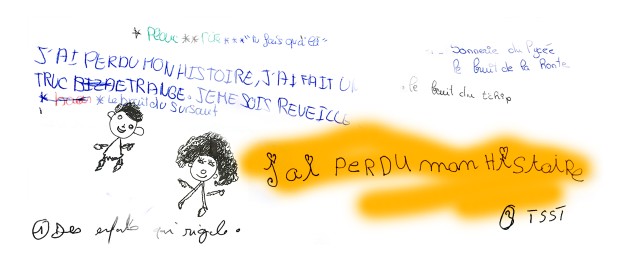 * PLOUC ** RUE *** "tu fais quoi là"
Sonnerie du lycée
J'AI PERDU MON HISTOIRE, J'AI FAIT UN
le bruit de la Honte
TRUC DETRANGE. JE ME SOIS REVEILLE
le bruit du tchip
* * Le bruit du sursaut
j'ai PERDU mon HIStoiRE
① Des enfants qui rigole.
③ TSST